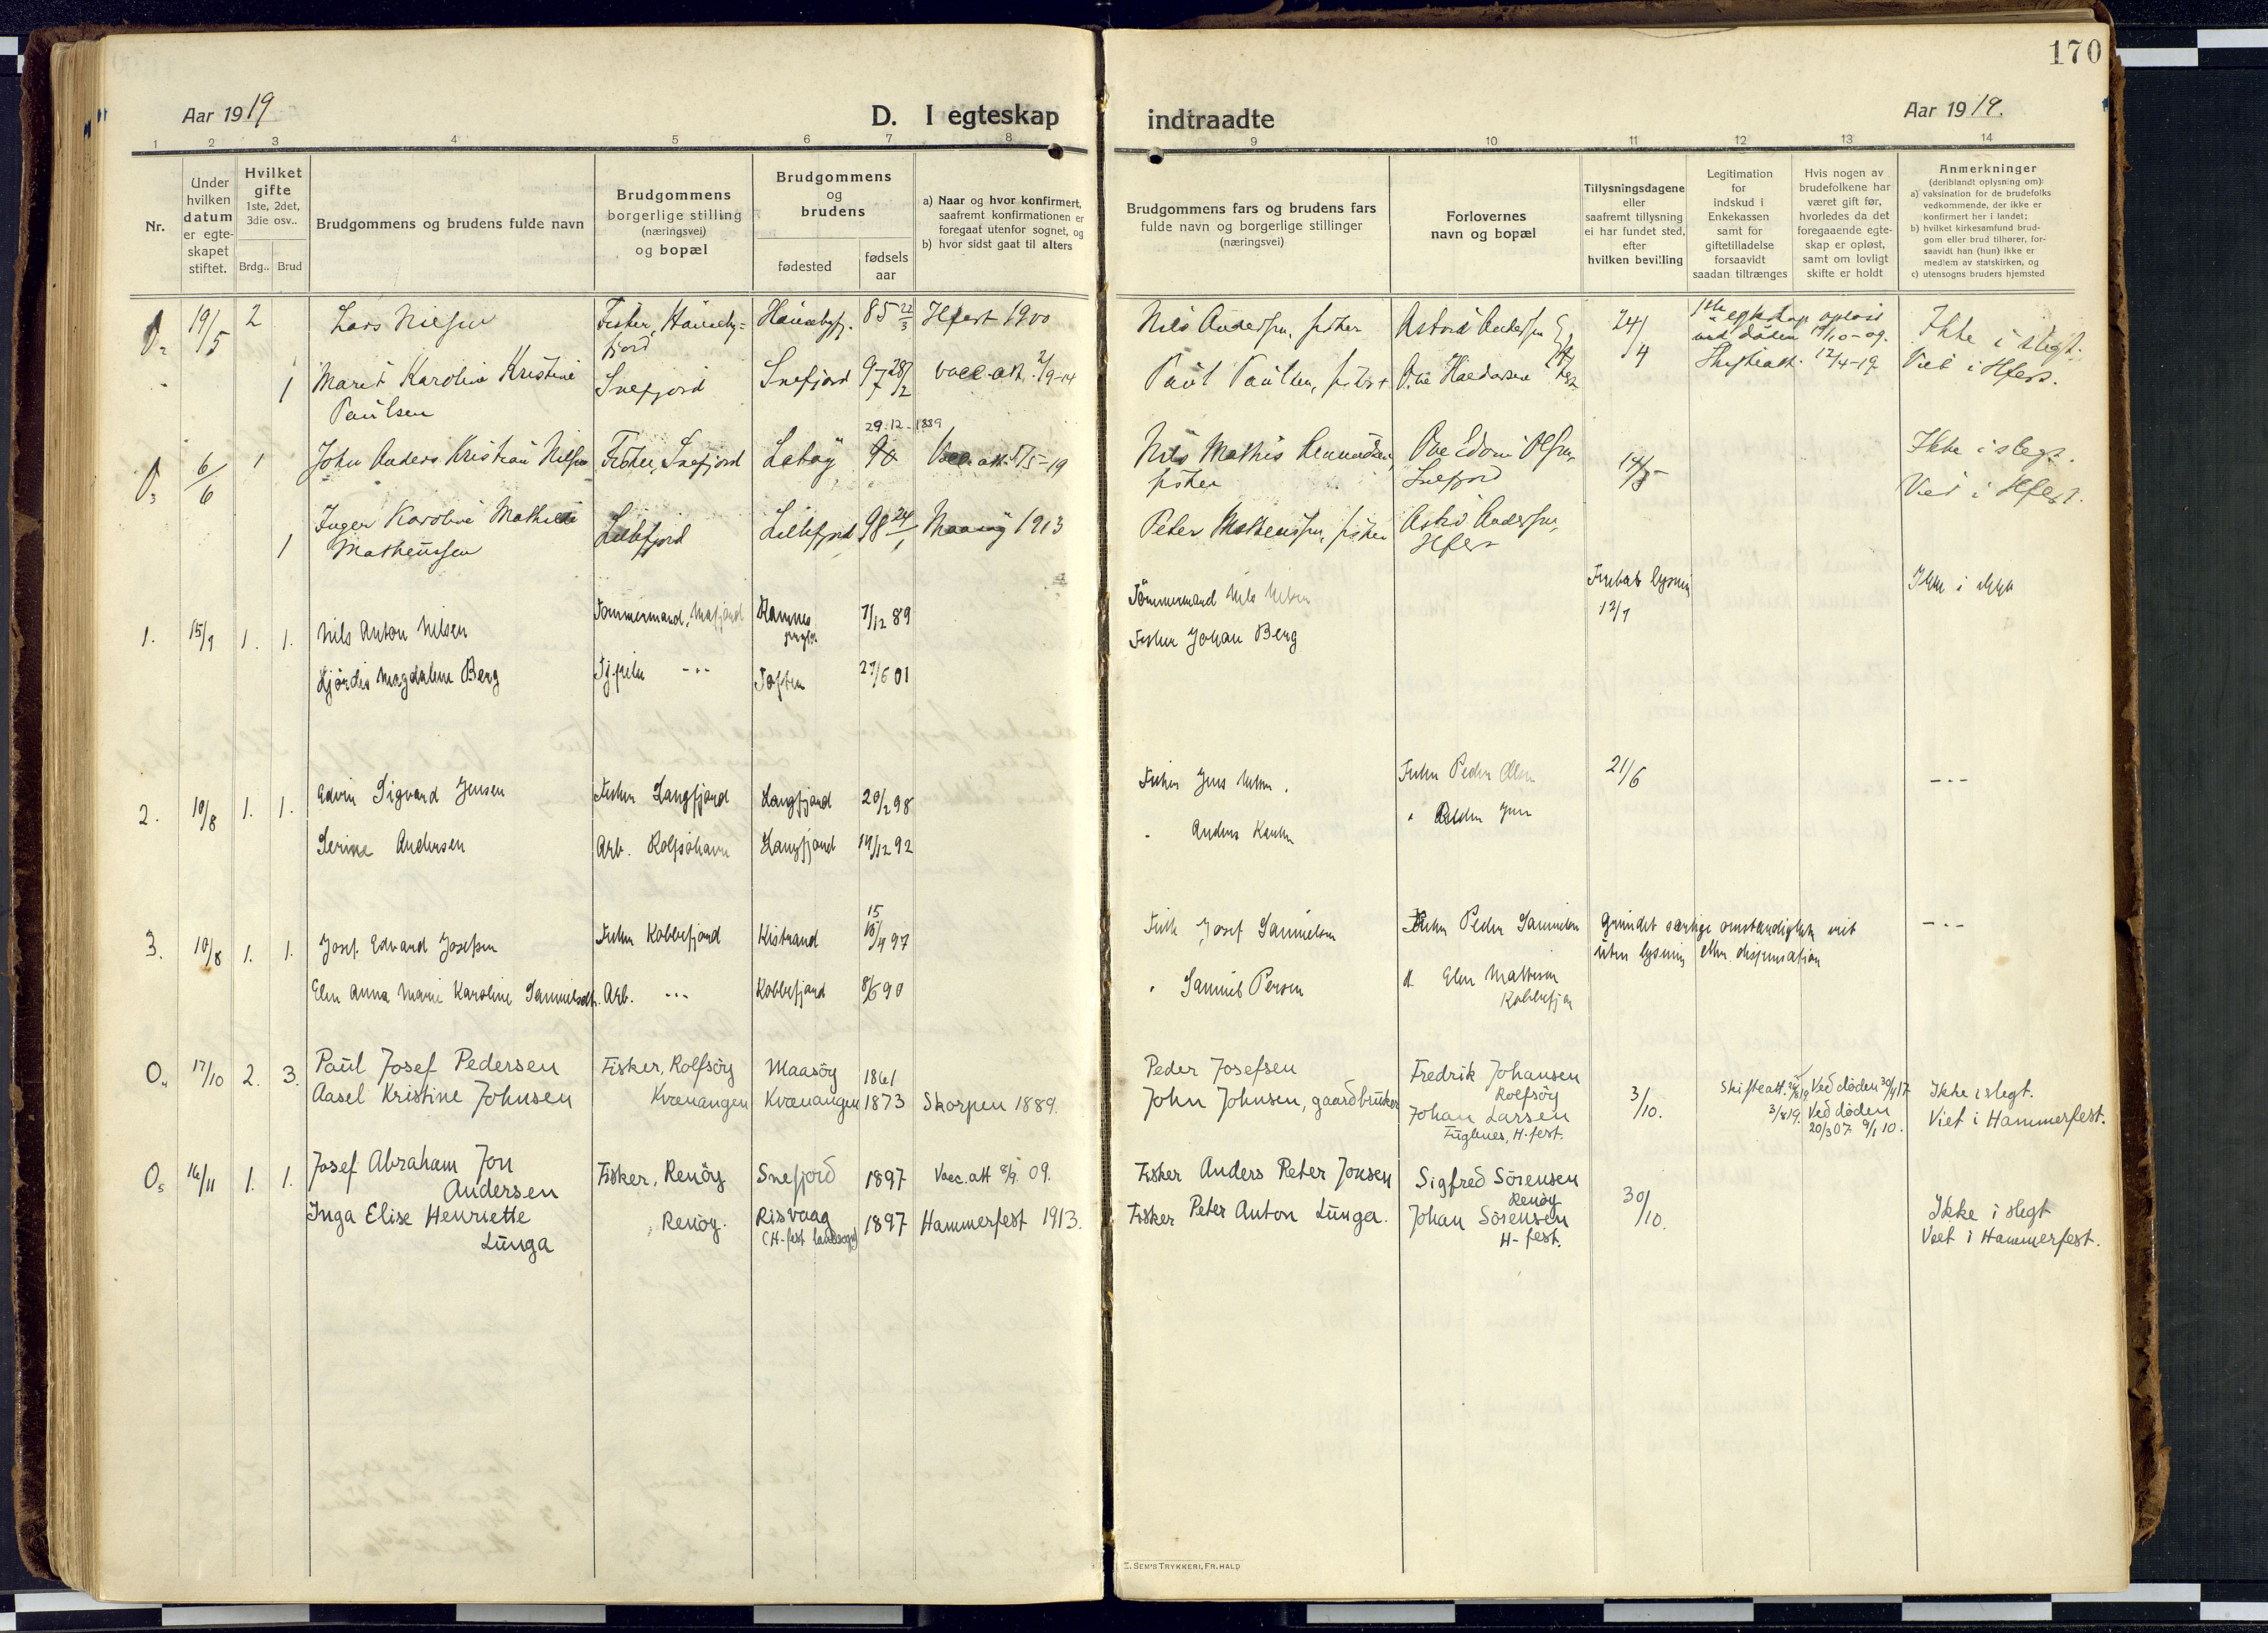 170
Aar 1919
D. I egteskap indtraadte
Aar 1919.
1 2 3 4 5 6 7 8 9 10 11 12 13 14
Nr.
Under hvilken datum er egte-skapet stiftet.
Hvilket gifte 1ste, 2det, 3die osv..
Brdg.. Brud
Brudgommens og brudens fulde navn
Brudgommens borgerlige stilling (næringsvei) og bopæl
Brudgommens og brudens
fødested
fødsels aar
a) Naar og hvor konfirmert, saafremt konfirmationen er foregaat utenfor sognet, og
b) hvor sidst gaat til alters
Brudgommens fars og brudens fars fulde navn og borgerlige stillinger (næringsvei)
Forlovernes navn og bopæl
Tillysningsdagene eller saafremt tillysning ei har fundet sted, efter hvilken bevilling
Legitimation for indskud i Enkekassen samt for giftetilladelse forsaavidt saadan tiltrænges
Hvis nogen av brudefolkene har været gift før, hvorledes da det foregaaende egte-skap er opløst, samt om lovligt skifte er holdt
Anmerkninger (deriblandt oplysning om):
a) vaksination for de brudefolks vedkommende, der ikke er konfirmert her i landet;
b) hvilket kirkesamfund brud-gom eller brud tilhører, for-saavidt han (hun) ikke er medlem av statskirken, og
c) utensogns bruders hjemsted
O2 19/5 2 Lars Nilsen Fisker, 85 22/3 Hfest 1900 Nils Andersen, fisker 24/4 ved døden 19/10-09. Ikke i slegt.
1 Maret Karoline Kristine Snefjord Snefjord 97 28/2 vacc. att. 2/9-14 Paul Paulsen, fisker Skifteatt. 12/4-19 Viet i Hfest.
Paulsen
29.12.1889
O3 6/6 1 John Anders Kristian Nilsen Fisker, Snefjord 90 Vacc. att. 5/5-19 Nils Mathis Ove Edvin Olsen, 14/5 Ikke i slegt.
fisker Snefjord Viet i Hfest.
1 Inger Karoline Mathilde Lillefjord Lillefjord 98 24/1 Maasøy 1913 Peter Matheussen, fisker
Matheussen Hfest
1. 15/9 1. 1. Nils Anton Nilsen Tømmermand, 7/12 89 Tømmermand Nils Nilsen 12/9 Ikke i slekt
Hjørdis Magdalene Berg --- Toften 27/6 01 Fisker Johan Berg
2. 10/8 1. 1. Edvin Sigvard Jensen Fisker Langfjord Langfjord 20/2 98 Fisker Jens Fisker Peder Olsen 21/6 ---
Serine Andersen Arb. Rolfsøhavn Langfjord 19/12 92 " Anders
3. 10/8 1. 1. Josef Edvard Josefsen Fisker Kobbefjord Kistrand 15 16/4 97 Fisk. Josef Samuelsen Fisker Peder Samuelsen Grundet særlige omstændigheter viet ---
uten lysning efter dispensation
Elen Anna Marie Karoline Samuelsdt. Arb. --- Kobbefjord 8/5 90 " Samuel Persen Elen Mathisen
Kobbefjor
O4 17/10 2. 3. Paul Josef Pedersen Fisker, Rolfsöy Maasöy 1861 Peder Josefsen Fredrik Johansen
Rolfsöy 3/10. Skifteatt. Ved døden 30/4 17 Ikke i slegt.
Aasel Kristine Johnsen Kvænangen Kvænangen 1873 Skorpen 1889. John Johnsen, gaardbruker Johan Larsen 3/8 19. Ved døden Viet i Hammerfest.
Fuglenes, H-fest. 20/3 07 9/1 10.
O5 16/11 1. 1. Josef Abraham Jon Fisker, Renöy Snefjord 1897 Vacc. att 8/9 09. Fisker Anders Peter Jonsen Sigfred Sörensen
Andersen Renöy 30/10.
Inga Elise Henriette Renöy. Risvaag 1897 Hammerfest 1913. Fisker Peter Anton Lunga. Johan Sörensen Ikke i slegt
Lunga (H-fest landsogn) H-fest. Viet i Hammerfest.
E. SEM'S TRYKKERI, FR. HALD